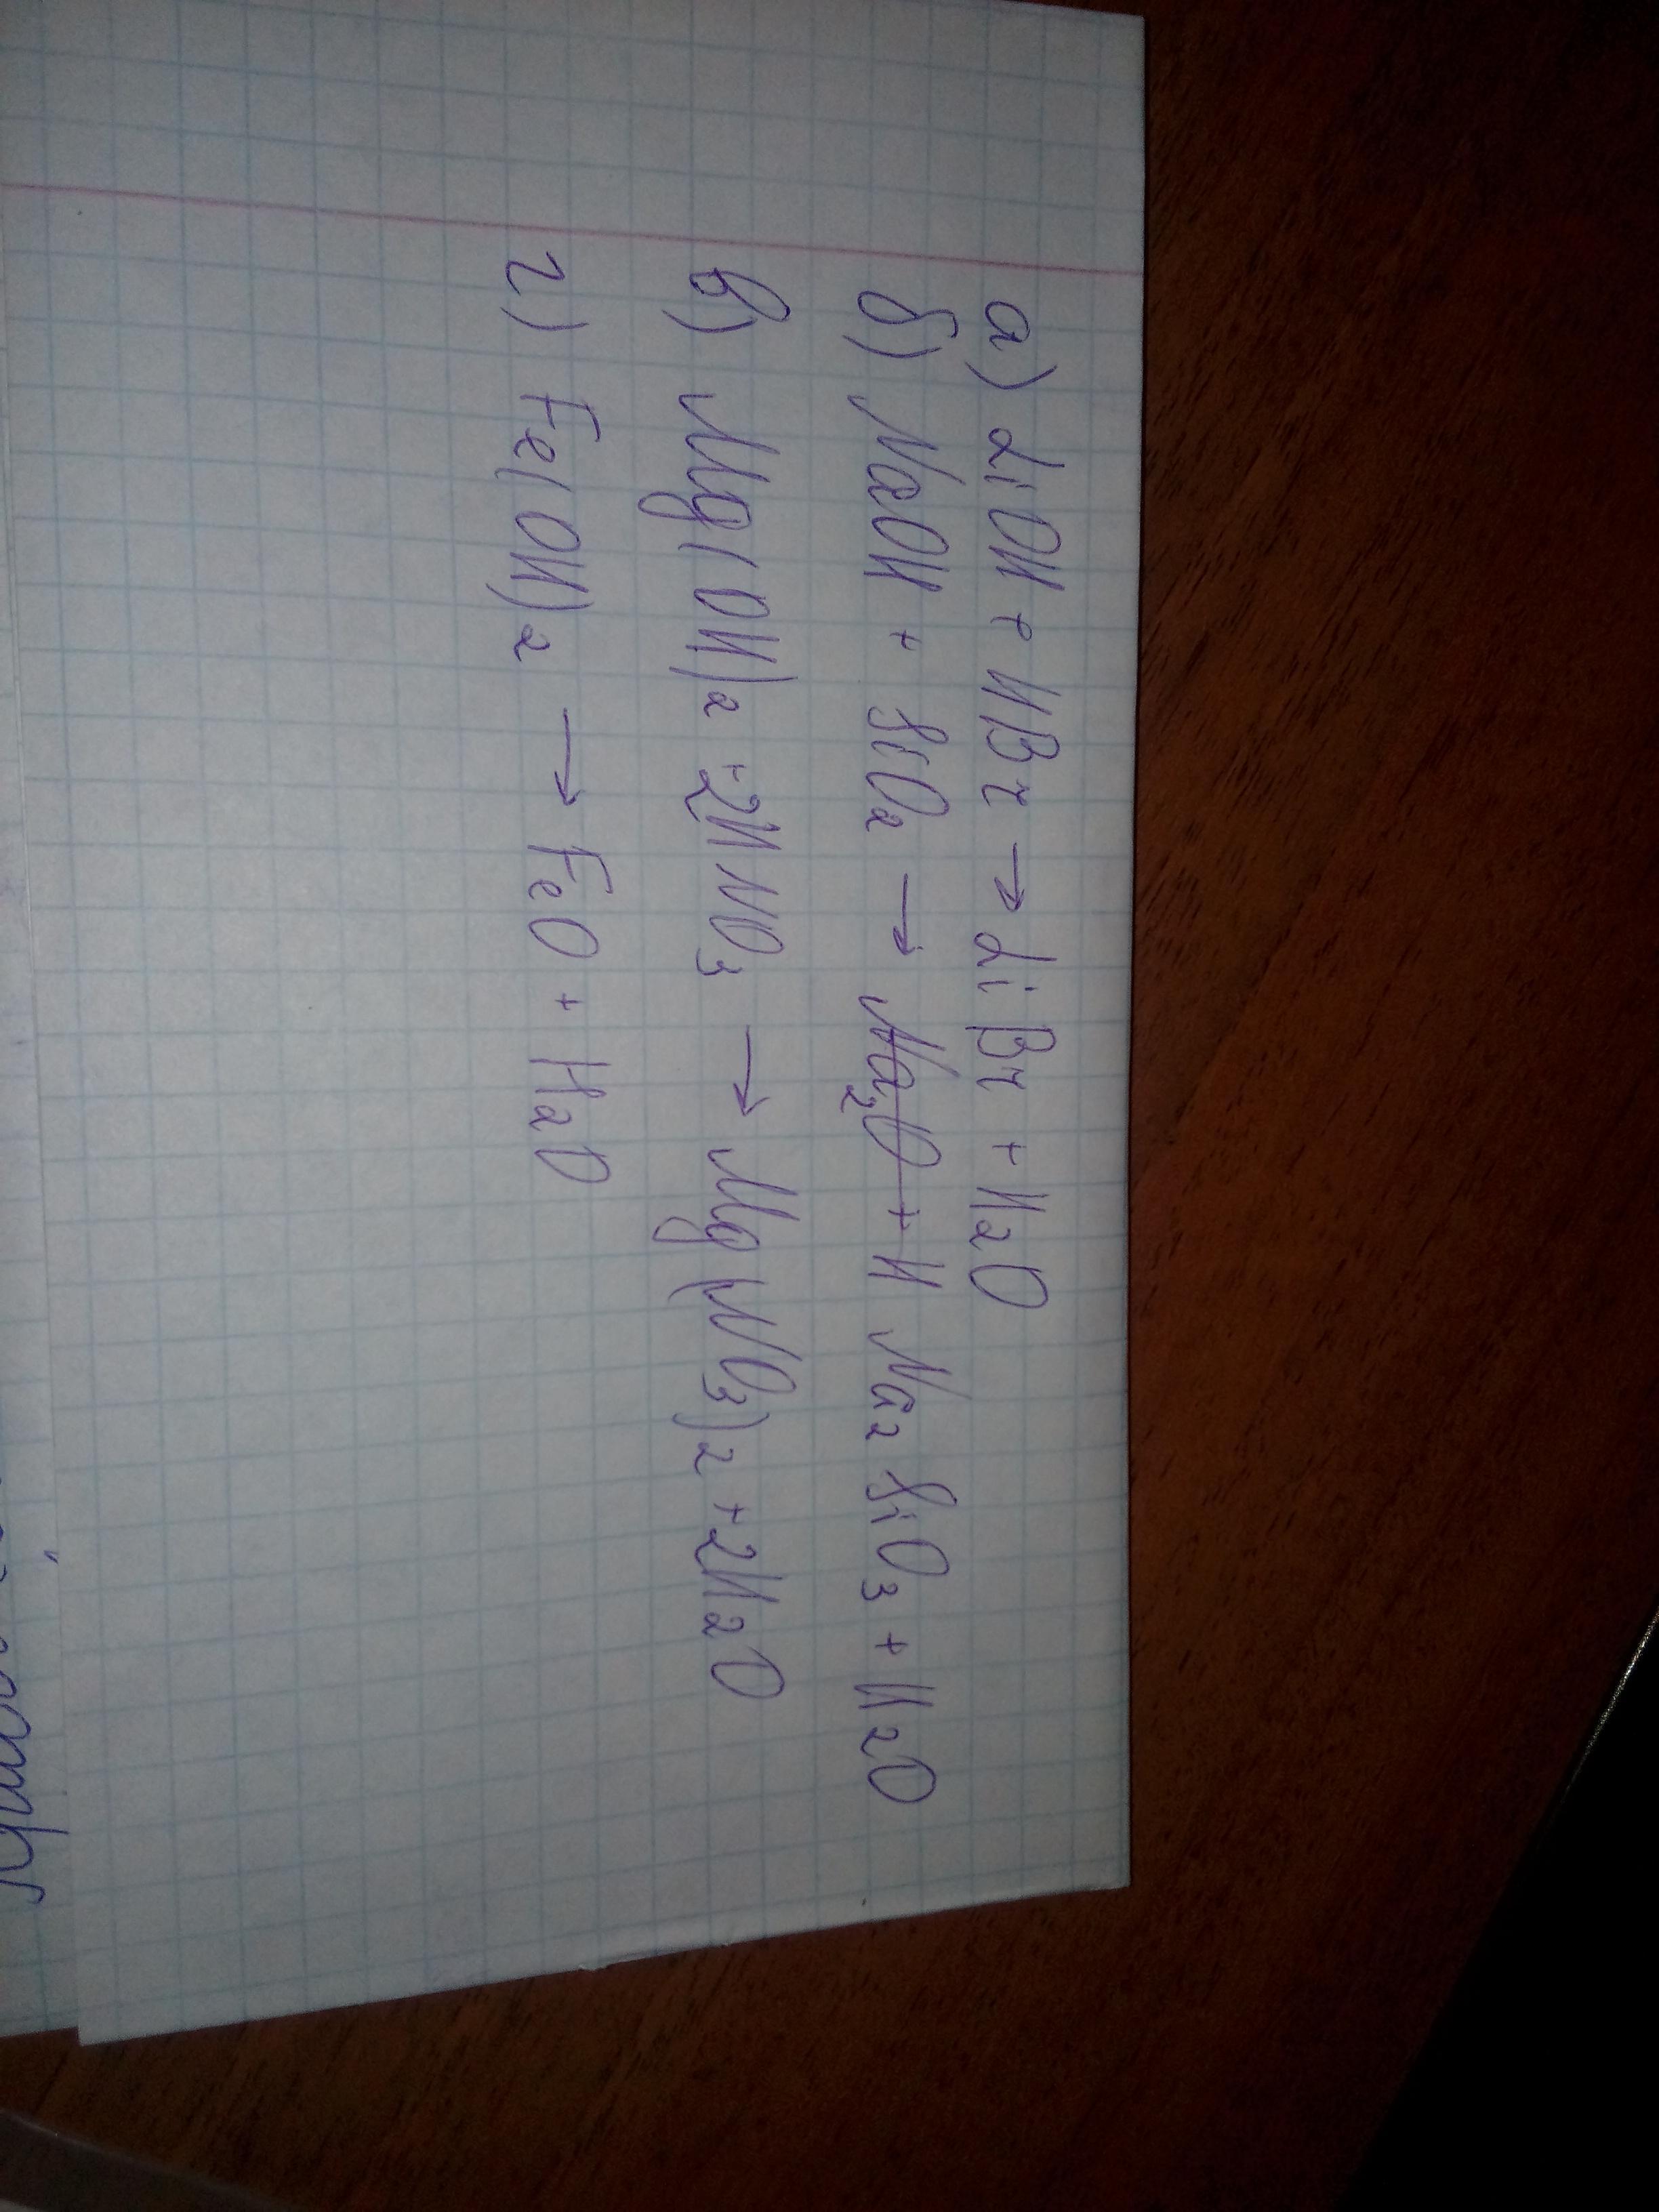 а) LiOH + HBr → LiBr + H2O
б) NaOH + SiO2 → Na2O + H Na2SiO3 + H2O
в) Mg(OH)2 + 2HNO3 → Mg(NO3)2 + 2H2O
г) Fe(OH)2 → FeO + H2O